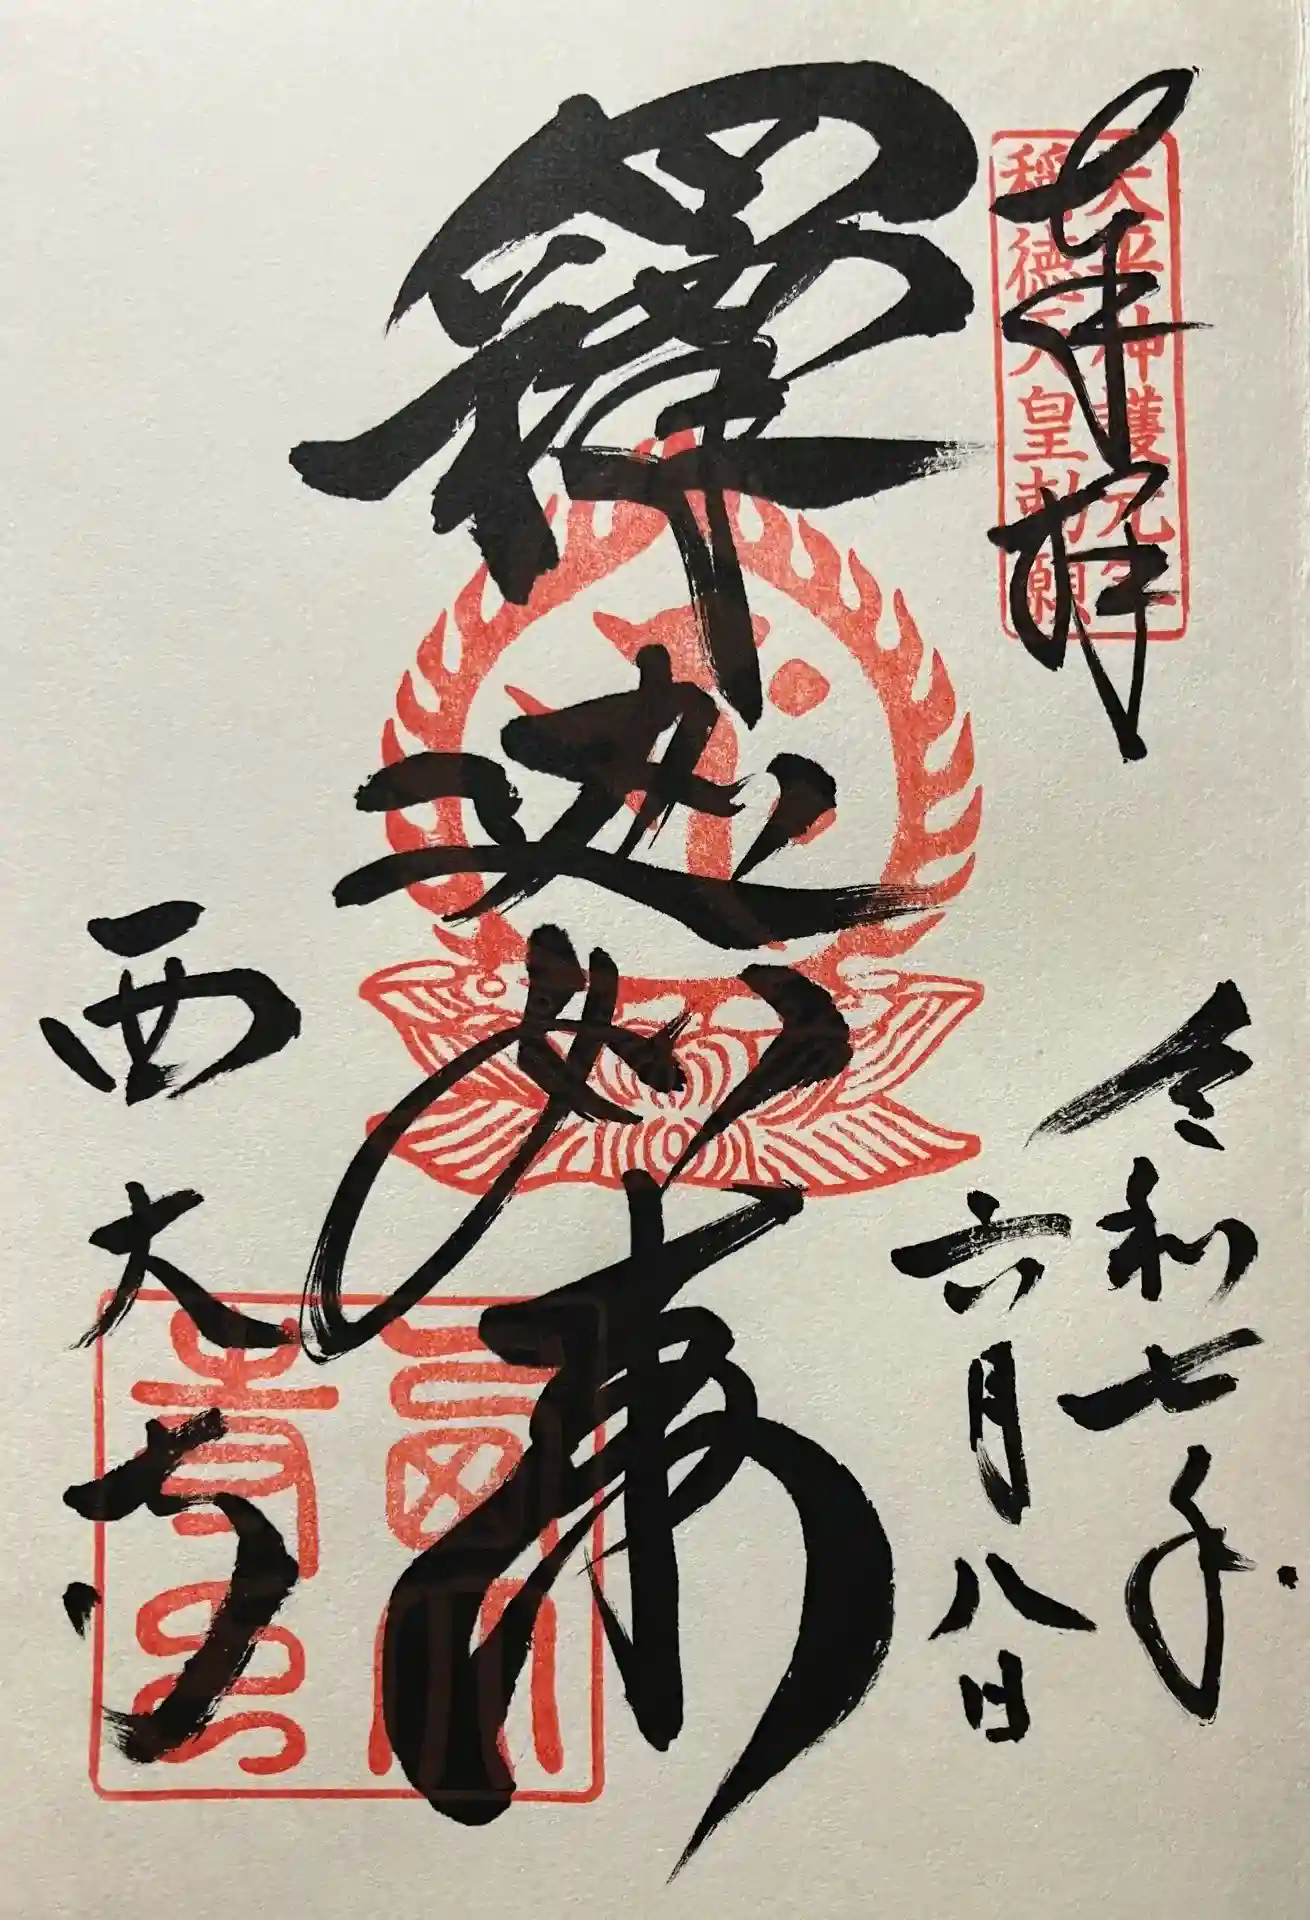 奉拝
天平神護元年
称徳天皇勅願
令和七年
六月八日
釋迦如来
西大寺
西大寺印